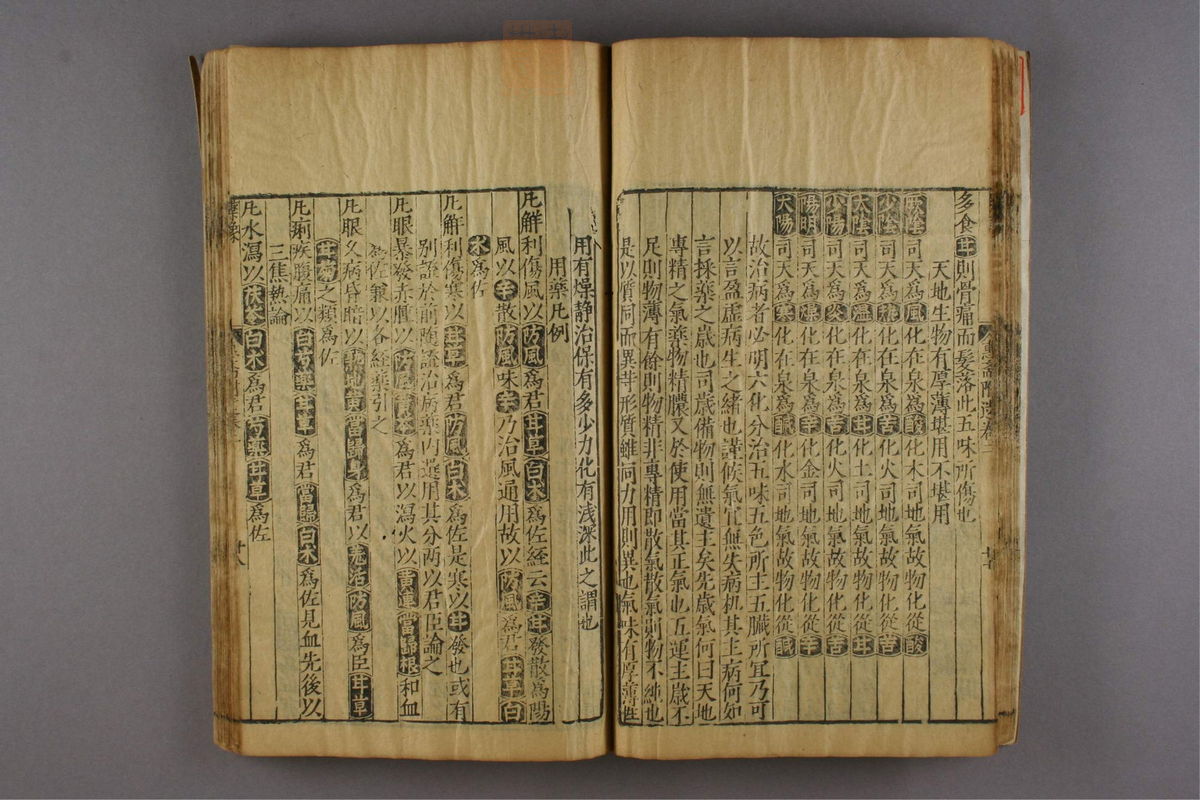 多食甘則骨痛而髮落此五味所傷也
天地生物有厚薄堪用不堪用
厥陰司天爲風化在泉爲酸化木司地氣故物化從酸
少陰司天爲熱化在泉爲苦化火司地氣故物化從苦
太陰司天爲濕化在泉爲甘化土司地氣故物化從甘
少陽司天爲火化在泉爲苦化火司地氣故物化從苦
陽明司天爲燥化在泉爲辛化金司地氣故物化從辛
太陽司天爲寒化在泉爲鹹化水司地氣故物化從鹹
故治病者必明六化分治五味五色所主五臟所宜乃可
以言盈虛病生之緒也謹候氣宜無失病机其主病何如
言採藥之歲也司歲備物則無遺主矣先歲氣何曰天地
專精之氣藥物精膿又於使用當其正氣也五運主歲不
足則物薄有餘則物精非專精即散氣散氣則物不純也
是以質同而異等形質雖同力用則異也氣味有厚薄性
用有燥静治保有多少力化有浅深此之謂也
用藥凡例
凡解利傷風以防風爲君甘草白术爲佐経云辛甘發散爲陽
風以辛散防風味辛乃治風通用故以防風爲君甘草白
术爲佐
凡解利傷寒以甘草爲君防風白术爲佐是寒以甘發也或有
别證於前隨證治病藥内選用其分两以君臣論之
凡眼暴發赤腫以防風黄芩爲君以瀉火以黄連當歸根和血
爲佐兼以各経藥引之
凡眼久病昏暗以熟地黄當歸身爲君以羌活防風爲臣甘草
甘菊之類爲佐
凡痢疾腹痛以白芍藥甘草爲君當歸白术爲佐見血先後以
三焦熱論
凡水瀉以茯苓白术爲君芍藥甘草爲佐